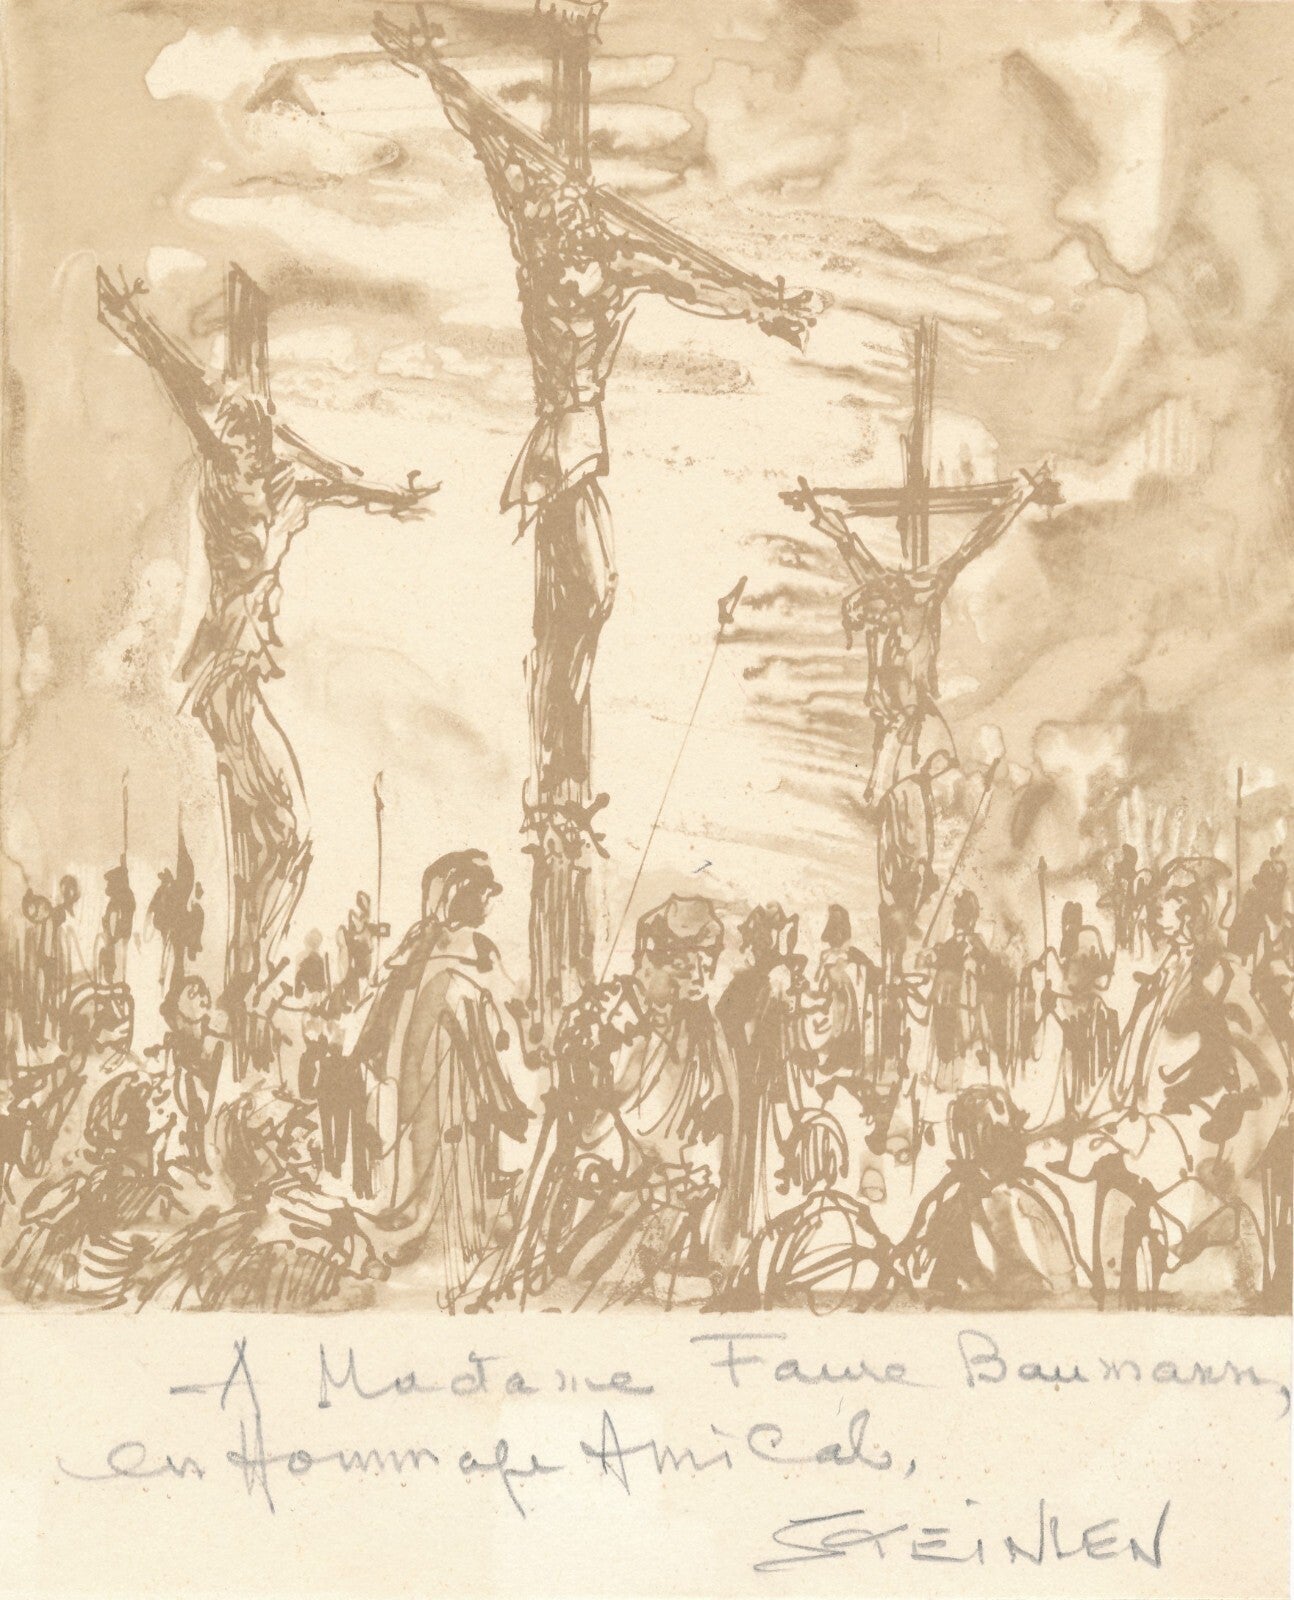 A Madame Faure Baumann,
en Hommage Amical,
STEiNLEN